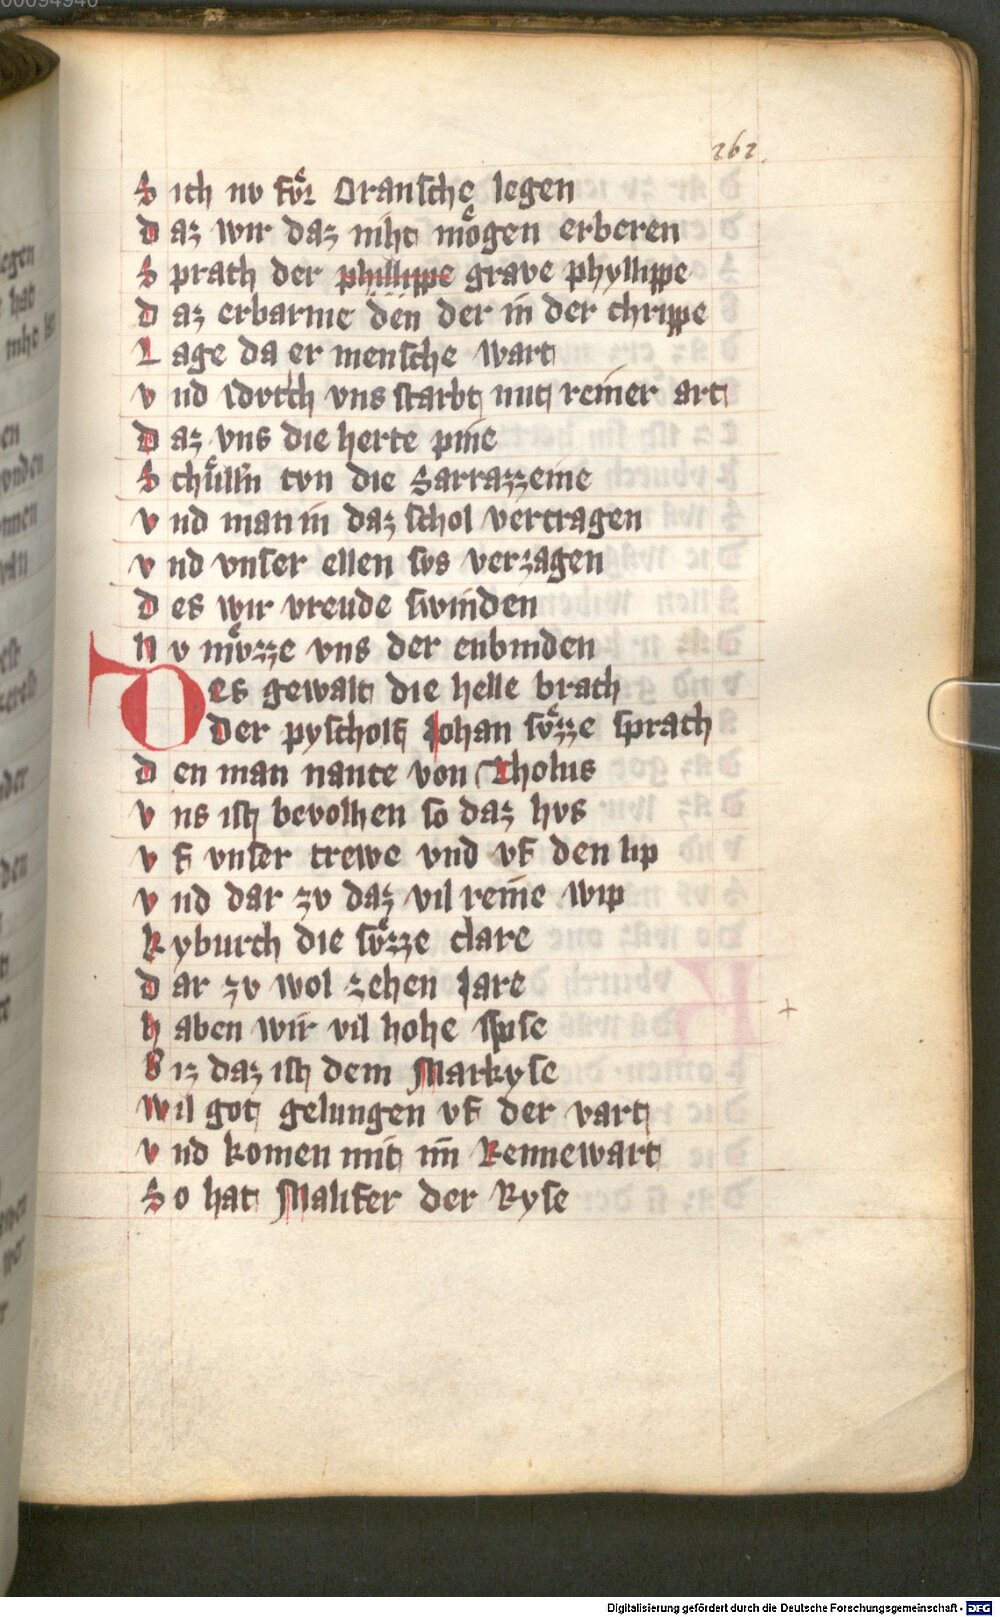 262.
S ich nv fuͦr Oransche legen
d az wir daz niht muͦgen erberen
S prach der phillippe grave phyllippe
d az erbarme den der in der chrippe
L age da er mensche wart
v nd idoch vns starbt mit reiner art
d az vns die herte pine
S chuͤlln tvn die Sarrazzeine
v nd man in daz schol vertragen
v nd vnser ellen svs verzagen
d es wir vreude swinden
N v muͦzze vns der enbinden
Des gewalt die helle brach
der pyscholf Johan suͦzze sprach
d en man nante von Tholus
v ns ist bevolhen so daz hvs
v f vnser trewe vnd vf den lip
v nd dar zv daz vil reine wip
K yburch die suͦzze clare
d ar zv wol zehen Jare
h aben wir vil hohe spise
B iz daz ist dem Markyse
Wil got gelungen vf der vart
v nd komen mit im Rennewart
S o hat Malifer der Ryse
Digitalisierung gefördert durch die Deutsche Forschungsgemeinschaft - DFG